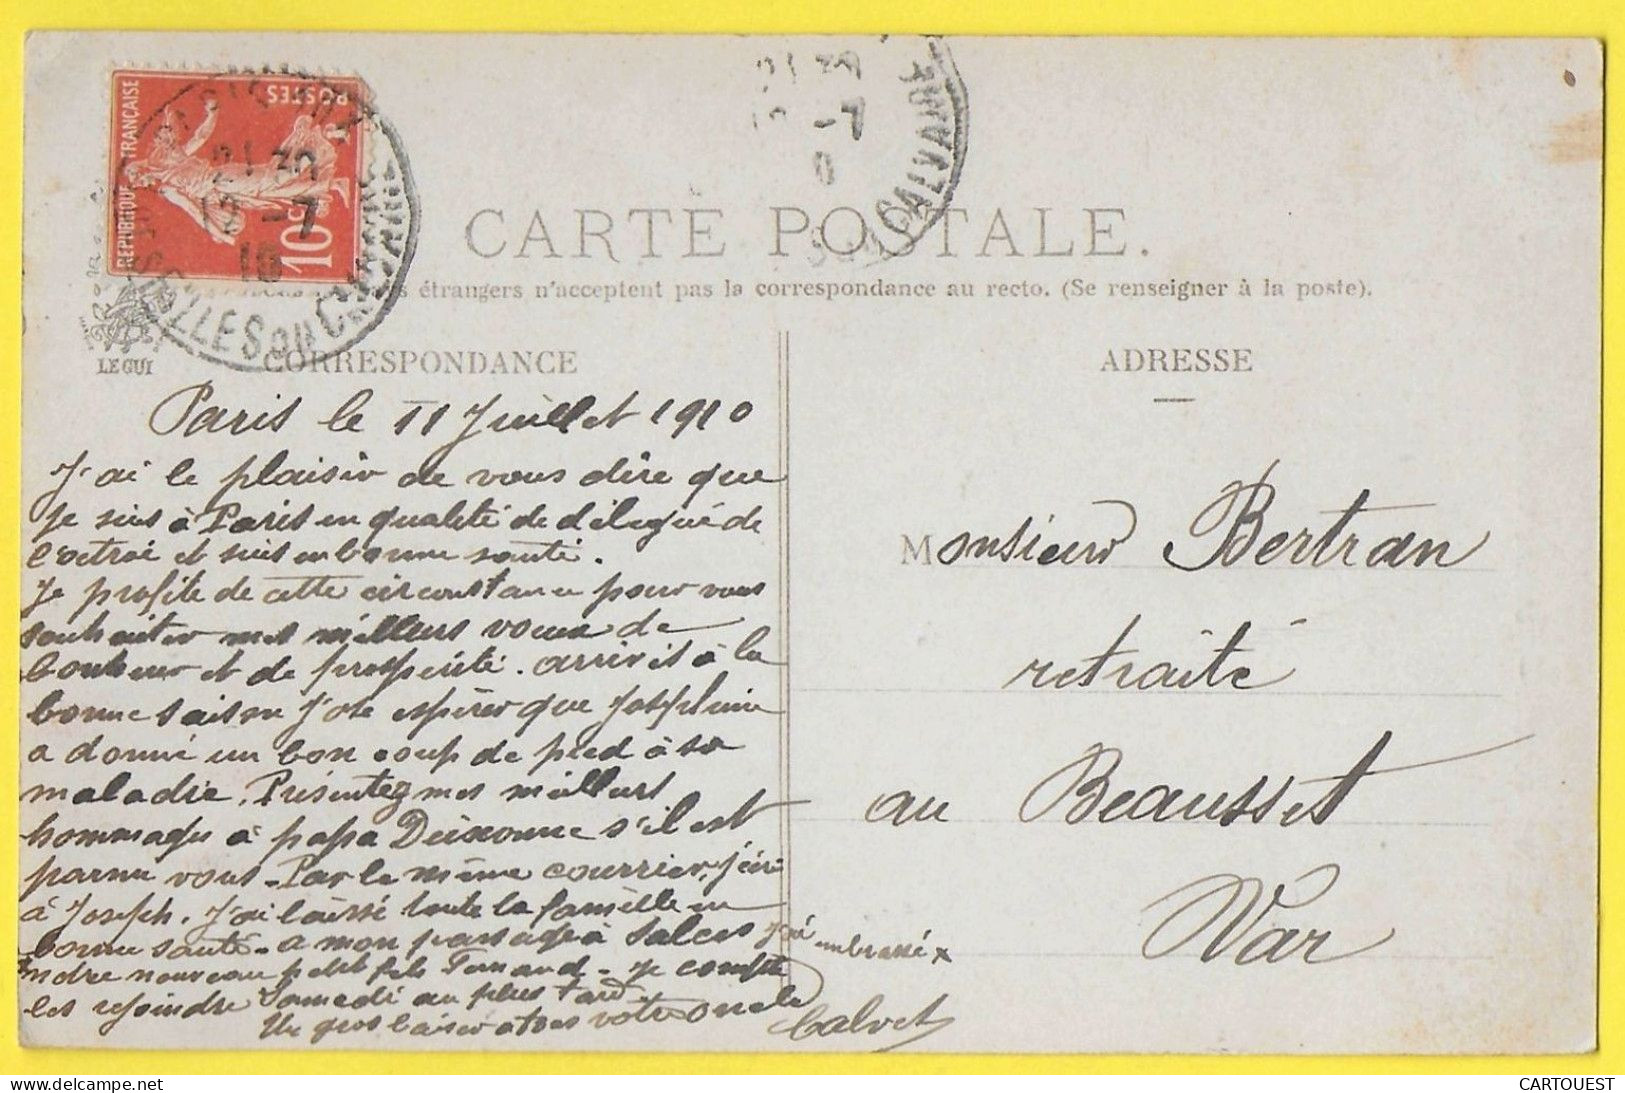 RÉPUBLIQUE FRANÇAISE
POSTES
10c
21 30
12 -7
10
21 30
-7
CALVAIRE
CARTE POSTALE.
étrangers n'acceptent pas la correspondance au recto. (Se renseigner à la poste).
LE GUI
CORRESPONDANCE
ADRESSE
Paris le 11 Juillet 1910
J'ai le plaisir de vous dire que
je suis à Paris en qualité de délégué de
l'octroi et suis en bonne santé.
Je profite de cette circonstance pour vous
souhaiter mes meilleurs voeux de
bonheur et de prospérité. arrivés à la
bonne saison j'ose espérer que Joséphine
a donné un bon coup de pied à sa
maladie. Présentez mes meilleurs
hommages à papa s'il est
parmi vous. Par le même courrier, j'écri
à Joseph. J'ai laissé toute la famille en
bonne santé. a mon passage à Salers j'ai embrassé x
notre nouveau petit fils Fernand. Je compte
les rejoindre Samedi au plus tard.
Un gros baiser a tous votre oncle
Calvet
Monsieur Bertran
retraité
au Beausset
Var
CARTOUEST